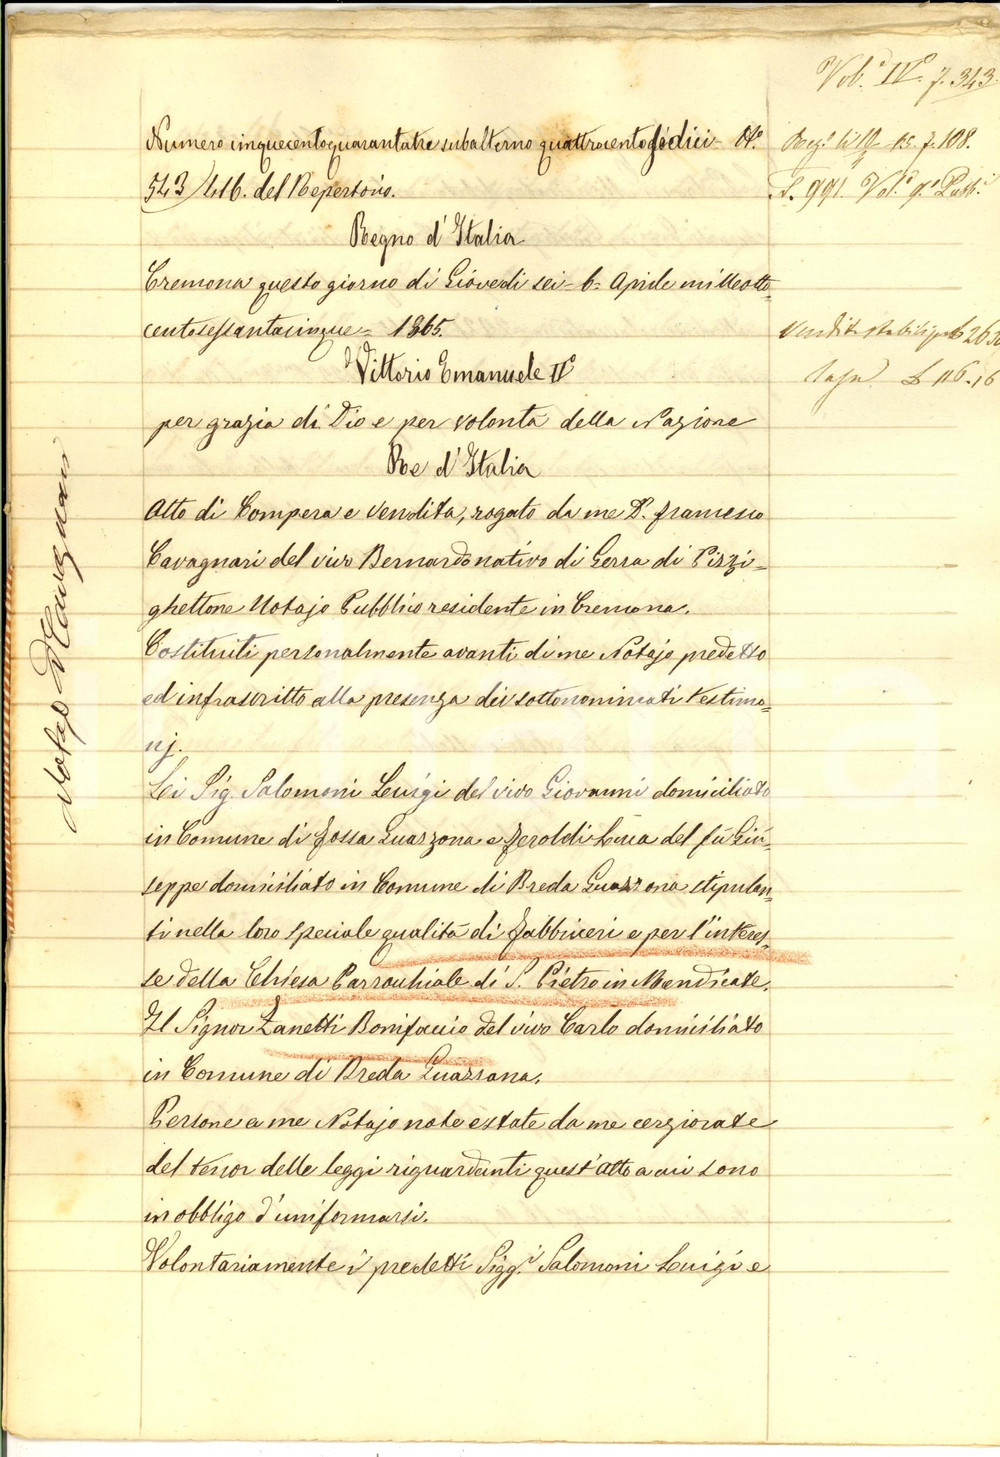 Vol.e IV.o f. 343.
Numero cinquecentoquarantatre subalterno quattrocentosedici - N.o
543/416. del Repertorio.
f. 108.
Vol.e
Regno d'Italia
Cremona questo giorno di Giovedi sei - 6 - Aprile milleotto=
centosessantacinque = 1865.
Vendita stabili
Vittorio Emanuele II.o
Tassa £ 116.16
per grazia di Dio e per volontà della Nazione
Re d'Italia
Atto di Compera e Vendita, rogato da me D.r Francesco
Cavagnari del vivo Bernardo nativo di Gerra di Pizzi=
ghettone Notajo Pubblico residente in Cremona.
Costituiti personalmente avanti di me Notajo predetto
ed infrascritto alla presenza dei sottonominati testimo=
nj.
Li Sig. Salomoni Luigi del vivo Giovanni domiciliato
in Comune di Fossa Guazzona e Feroldi Luca del fù Giu=
seppe domiciliato in Comune di Breda Guazzona stipulan=
ti nella loro speciale qualità di Fabbriceri e per l'interes=
se della Chiesa Parrochiale di S. Pietro in Mendicate.
Il Signor Zanetti Bonifaccio del vivo Carlo domiciliato
in Comune di Breda Guazzona.
Persone a me Notajo note e state da me cerziorate
del tenor delle leggi riguardanti quest'atto a cui sono
in obbligo d'uniformarsi.
Volontariamente i predetti Sigg.i Salomoni Luigi e
Notajo D.r Cavagnari